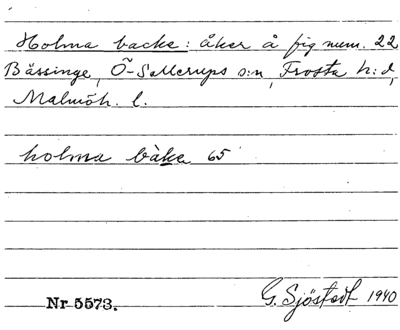 Holma backe: åker å fig num. 22
Bässinge, Ö-Sallerups s:n, Frosta h:d,
Malmöh. l.
holma bàke 65
Nr 5573. G. Sjöstedt 1940